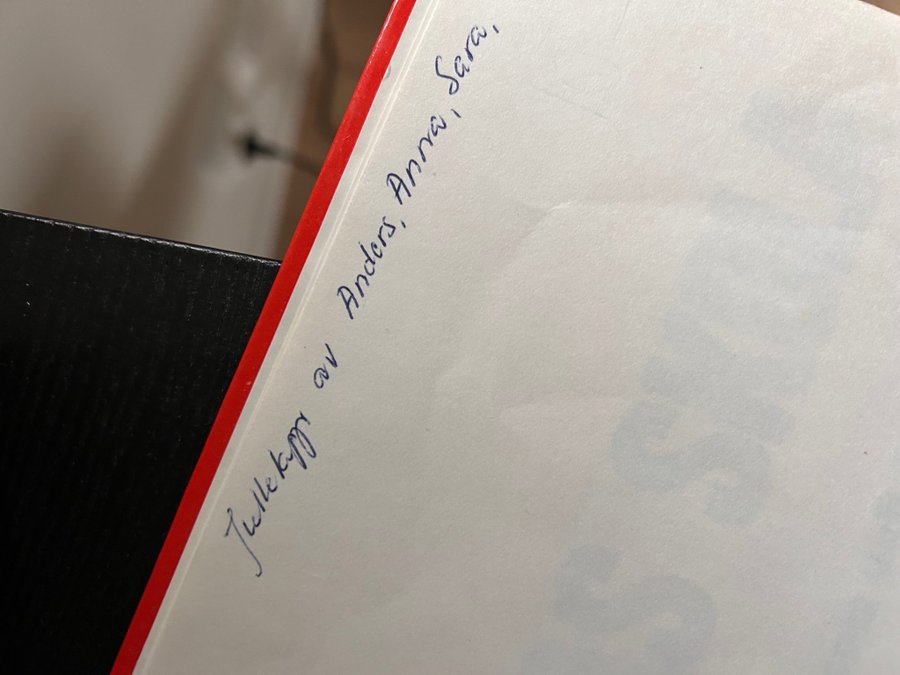 Julleklapp av Anders, Anna, Sara,